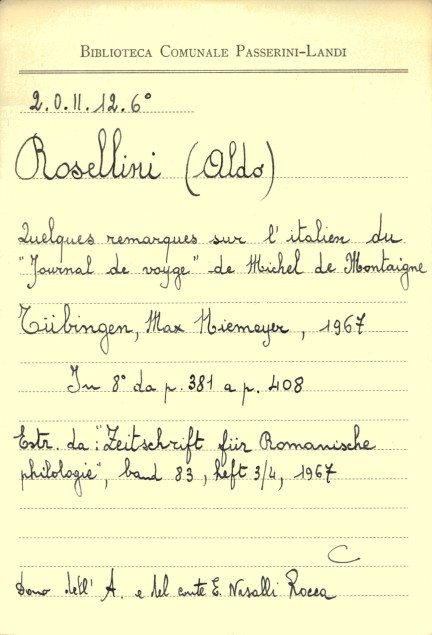 BIBLIOTECA COMUNALE PASSERINI-LANDI
2.O.II.12.6°
Rosellini (Aldo)
Quelques remarques sur l'italien du
"Journal de voyge" de Michel de Montaigne
Tübingen, Max Niemeyer, 1967
In 8° da p. 381 a p. 408
Estr. da: "Zeitschrift für Romanische
philologie", band 83, heft 3/4, 1967
C
Dono dell'A. e del conte E. Nasalli Rocca